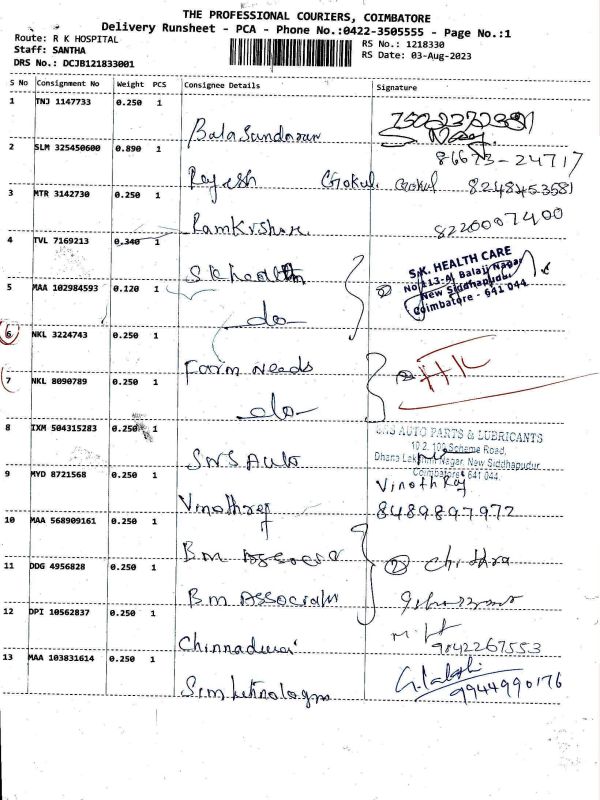 THE PROFESSIONAL COURIERS, COIMBATORE
Delivery Runsheet - PCA - Phone No.:0422-3505555 - Page No.:1
Route: R K HOSPITAL
RS No.: 1218330
Staff: SANTHA
RS Date: 03-Aug-2023
DRS No.: DCJB121833001
S No Consignment No Weight PCS Consignee Details Signature
1 TNJ 1147733 0.250 1
Bala Sundaram
2 SLM 325450600 0.890 1 86673-24717
Rajesh Gokul. Gokul 8248453581
3 MTR 3142730 0.250 1
Ramkrishna. 8220007400
4 TVL 7169213 0.340 1
SK health
S.K. HEALTH CARE
No.113-A, Balaji Nagar
New Siddhapudur
Coimbatore - 641 044
5 MAA 102984593 0.120 1 2
do
6 NKL 3224743 0.250 1
Farm needs
7 NKL 8090789 0.250 1 2
do
8 IXM 504315283 0.250 1
SNS Auto
SNS AUTO PARTS & LUBRICANTS
10 2, 100 Scheme Road,
Dhana Lakshmi Nagar, New Siddapudur
Coimbatore 641 044.
9 MYD 8721568 0.250 1 Vinoth Raj
Vinothraj 8489897972
10 MAA 568909161 0.250 1
B.m Associa 2 Chithra
11 DDG 4956828 0.250 1
B.m Associats
12 DPI 10562837 0.250 1
Chinnadurai 9842267553
13 MAA 103831614 0.250 1
9944990176